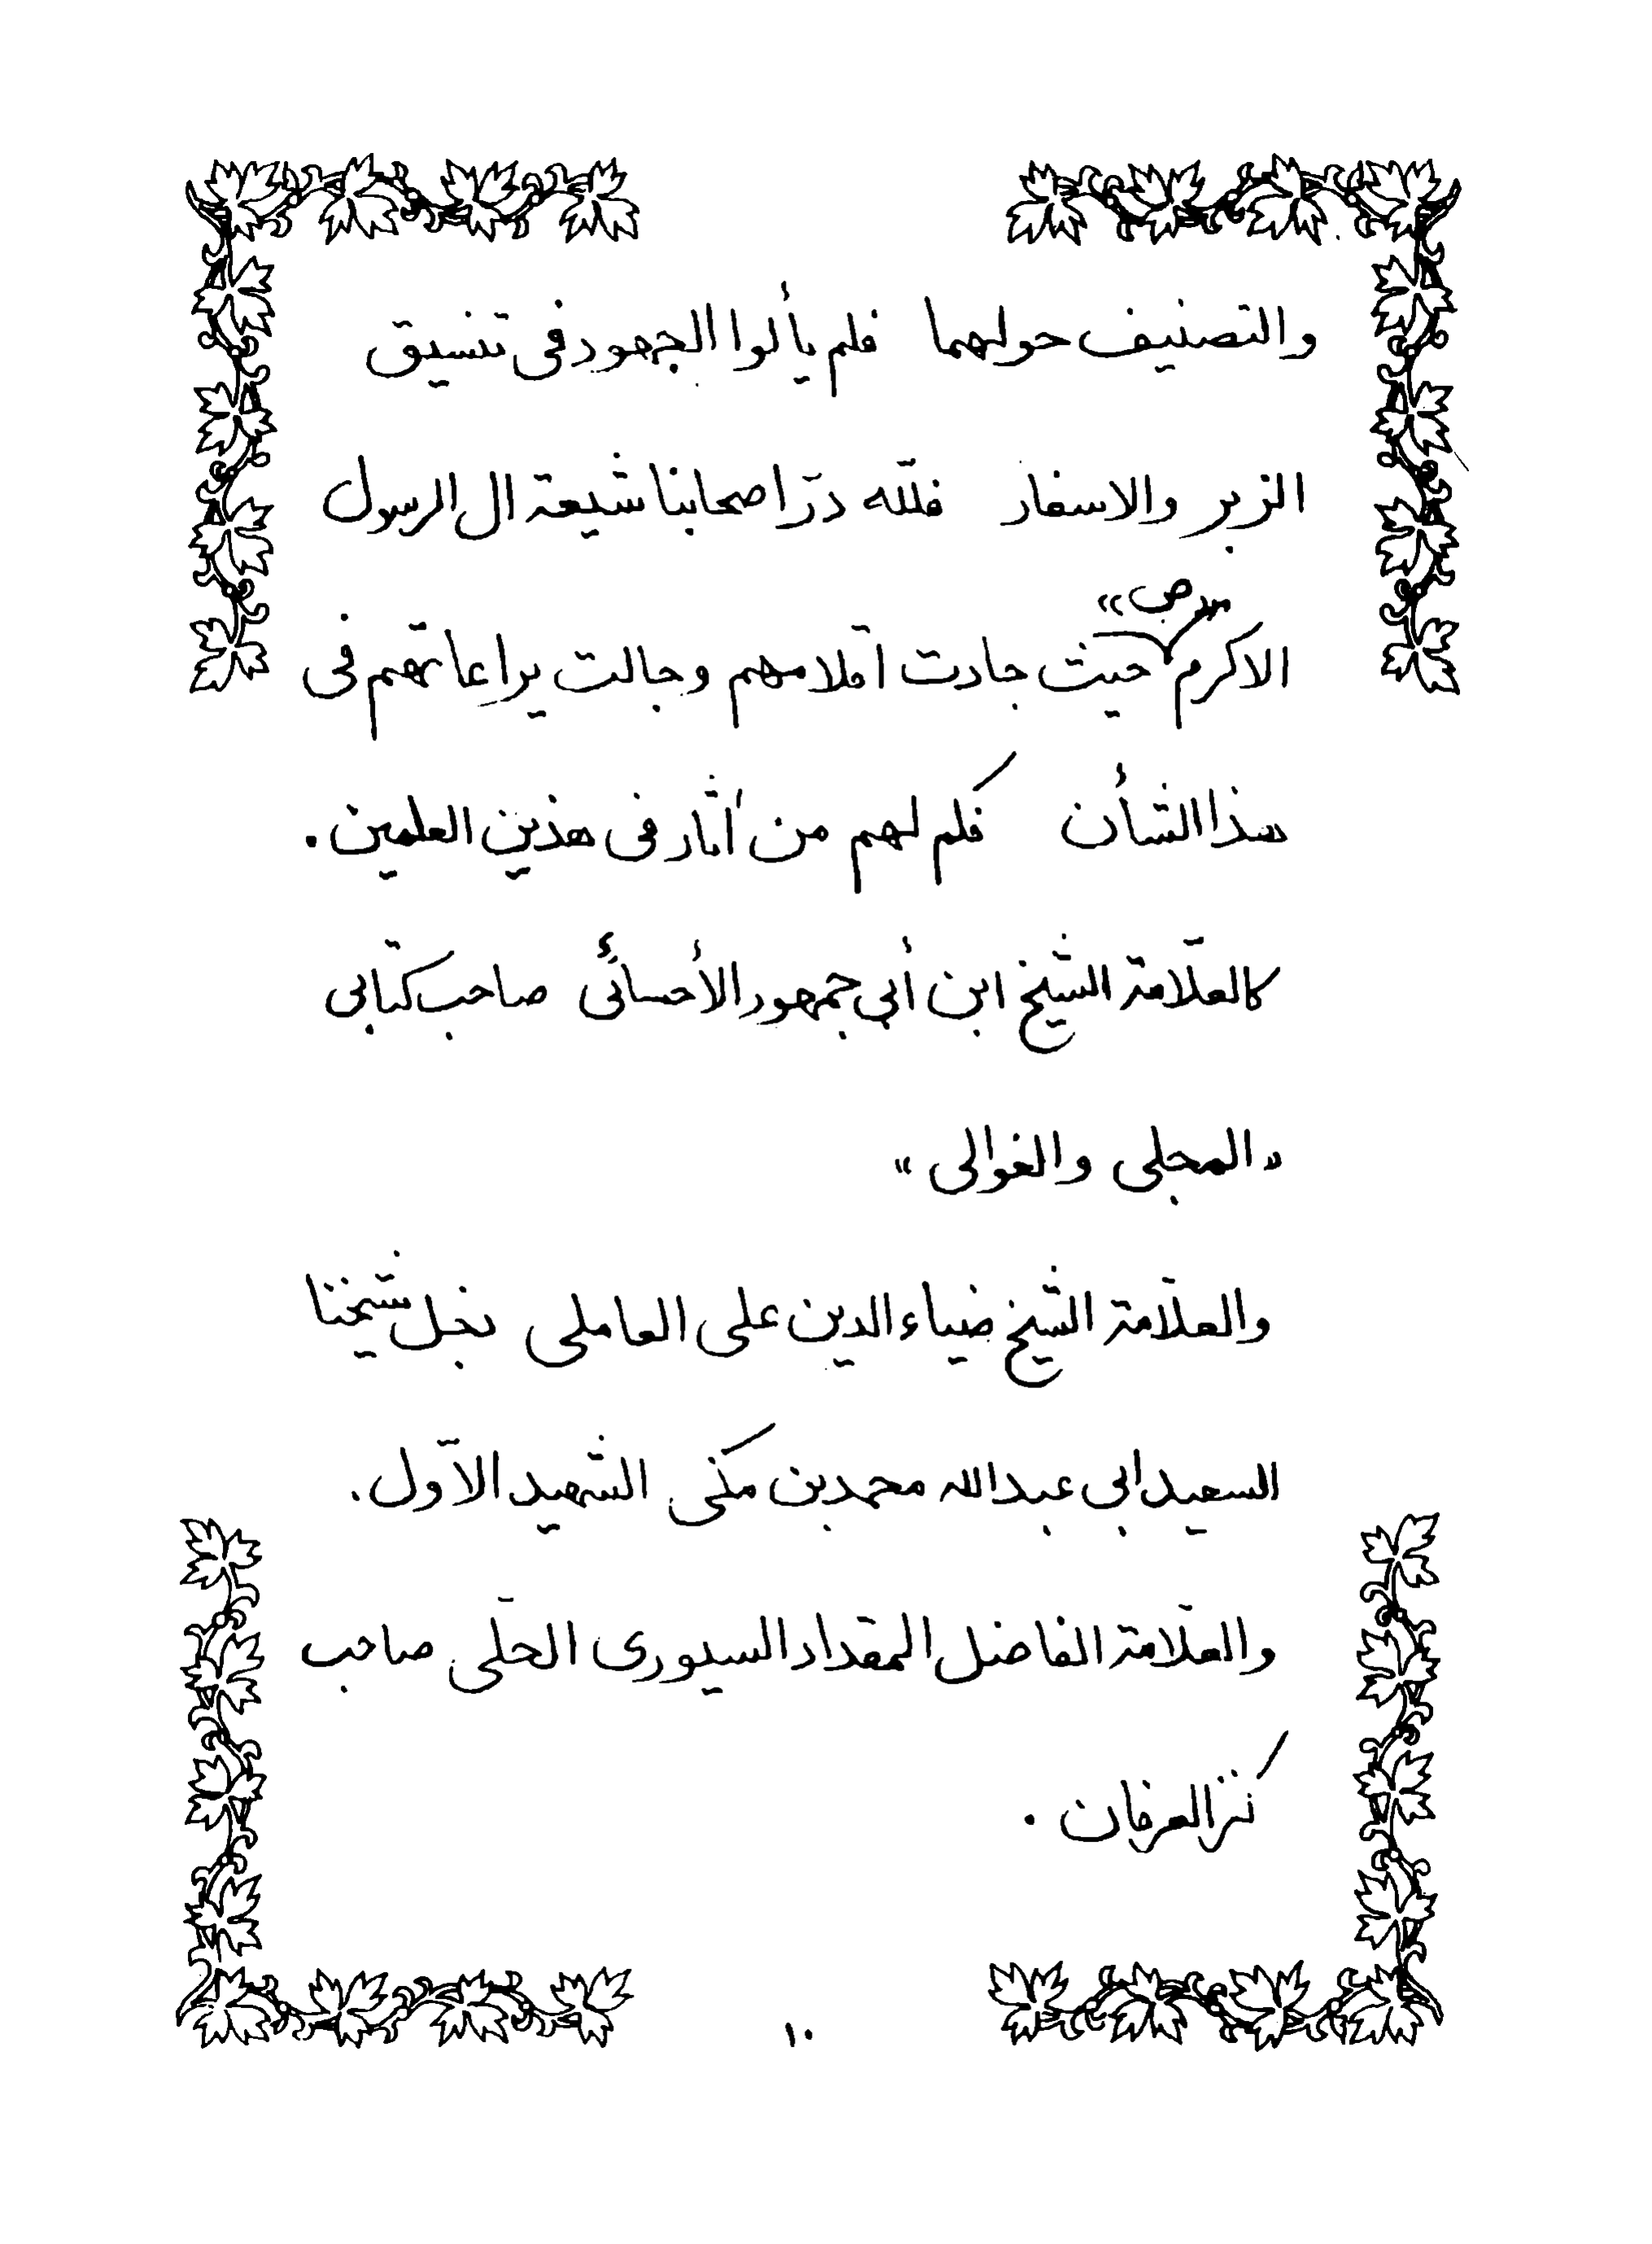 والتصنيف حولهما فلم يألوا الجهود فى تنسيق
الزبر والاسفار فللّه درّ اصحابنا شيعة ال الرسول
الاكرم «ص» حيث جادت اقلامهم وجالت يراعاتهم فى
هذا الشأن فكم لهم من أثار فى هذين العلمين .
كالعلّامة الشيخ ابن أبي جمهور الأحسائى صاحب كتابى
«المجلى والغوالى»
والعلّامة الشيخ ضياء الدين على العاملى نجل شيخنا
السعيد ابى عبدالله محمد بن مكى الشهيد الاّول .
والعلّامة الفاضل المقداد السيورى الحلّى صاحب
كنز العرفان .
١٠